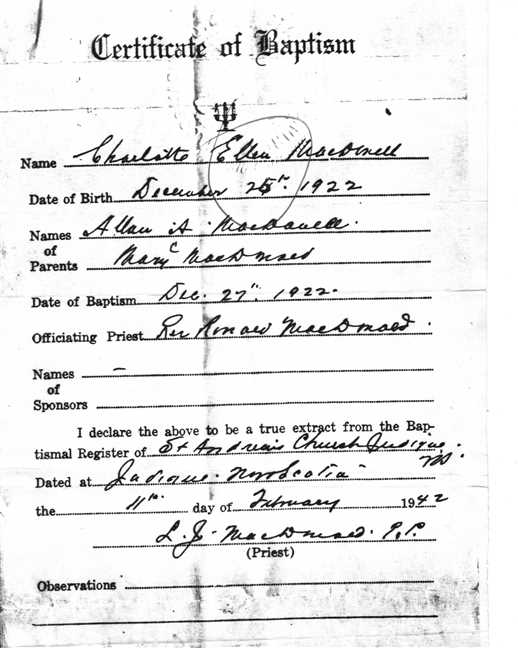 Certificate of Baptism
Name Charlotte Ellen MacDonell
Date of Birth December 25th. 1922
Names Allan A MacDonell.
of
Parents Mary C MacDonald
Date of Baptism Dec. 27th. 1922.
Officiating Priest Rev Ronald MacDonald.
Names —
of
Sponsors
I declare the above to be a true extract from the Bap-
tismal Register of St Andrew's Church Judique.
Dated at Judique Nova Scotia
the 11th. day of February 1942
L. J. MacDonald. P.P.
(Priest)
Observations